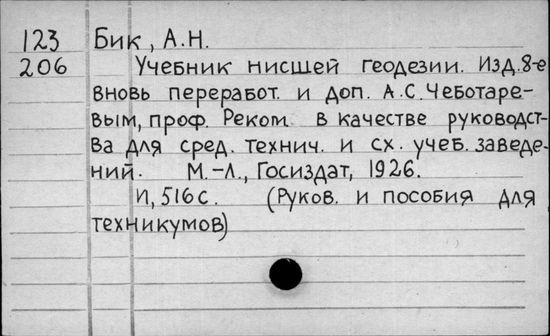 123 Бик, А.Н.
206 Учебник нисшей геодезии. Изд. 8-е
вновь переработ. и доп. А.С. Чеботаре-
вым, проф. Реком. в качестве руководст-
ва для сред. технич. и сх. учеб. заведе-
ний. М.-Л., Госиздат, 1926.
И, 516 с. (Руков. и пособия для
техникумов)